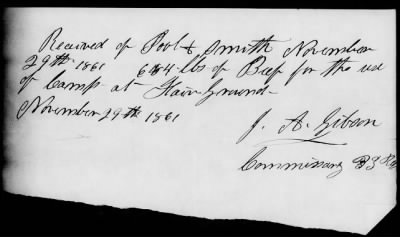 Received of Pool & Smith November
29th 1861 684 lbs of Beef for the use
of Camp at Fair Ground
November 29th 1861
J. A. Gibson
Commissary